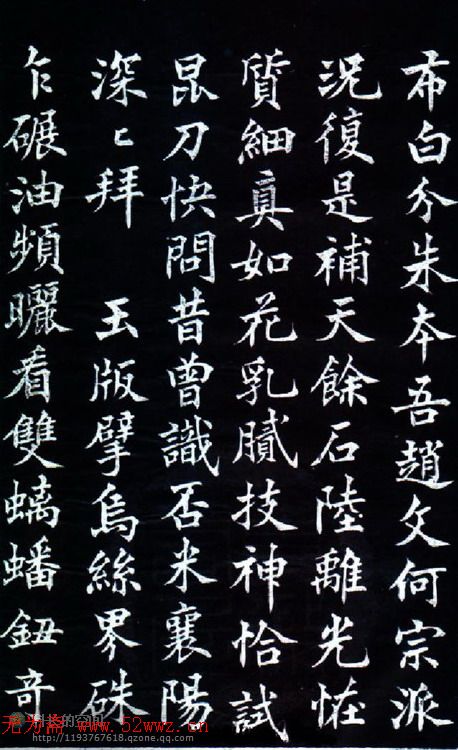 布白分朱夲吾趙文何宗派
況復是補天餘石陸離光恠
質細真如花乳膩技神恰試
昆刀快問昔曾識否米襄陽
深〻拜 玉版擘烏絲界硃
乍碾油頻曬看雙螭蟠鈕奇
无为斋 www.52wwz.cn
的空间
http://1193767618.qzone.qq.com